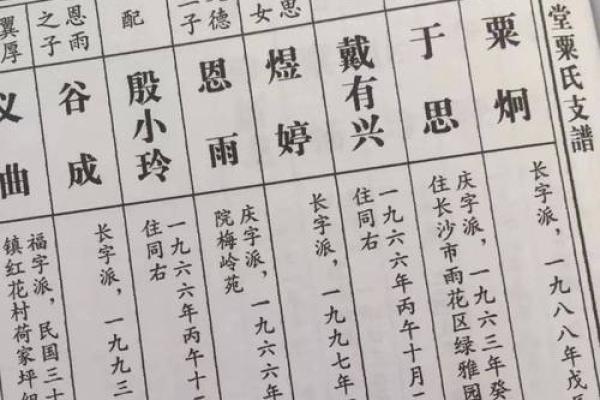 堂粟氏支譜
粟炯
长字派，一九八八年戊
于思
庆字派，一九六三年癸
住长沙市雨花区绿雅园
戴有兴
一九六六年丙午十月
住同右
思
女
煜婷
长字派，一九九七年
德
子
恩雨
庆字派，一九六六年
院梅岭苑
配
殷小玲
一九六六年丙午十
住同右
恩雨
之子
谷成
长字派，一九九三
翼厚
义曲
福字派，民国三十
镇红花村荷家坪